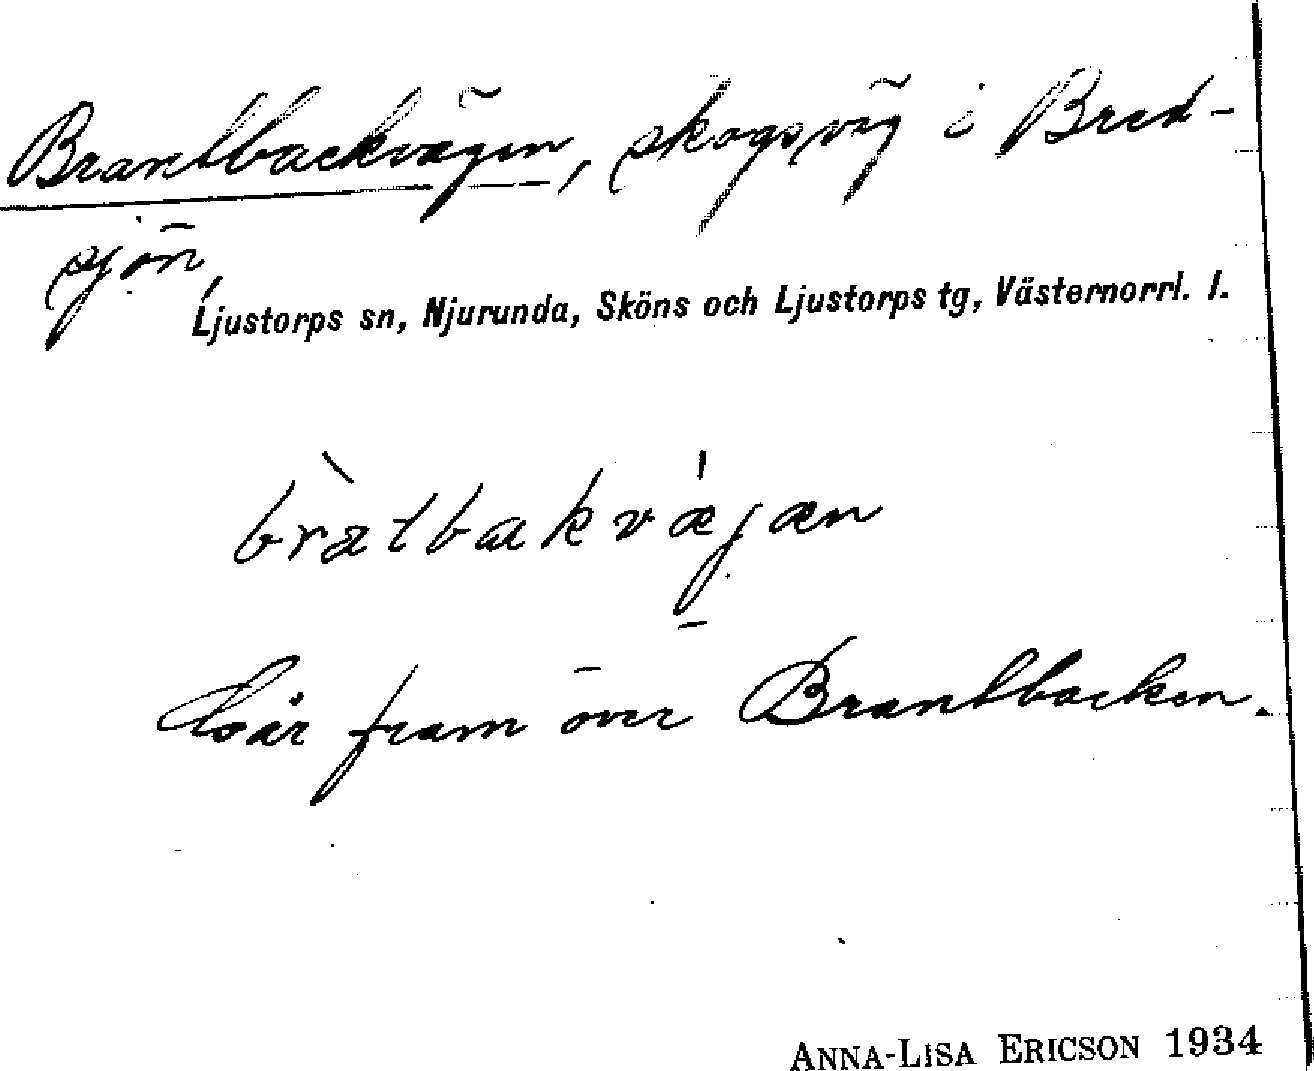 Brantbackvägen, skogsväg i Bred-
sjön,
Ljustorps sn, Njurunda, Sköns och Ljustorps tg, Västernorrl. l.
Går fram över Brantbacken.
ANNA-LISA ERICSON 1934